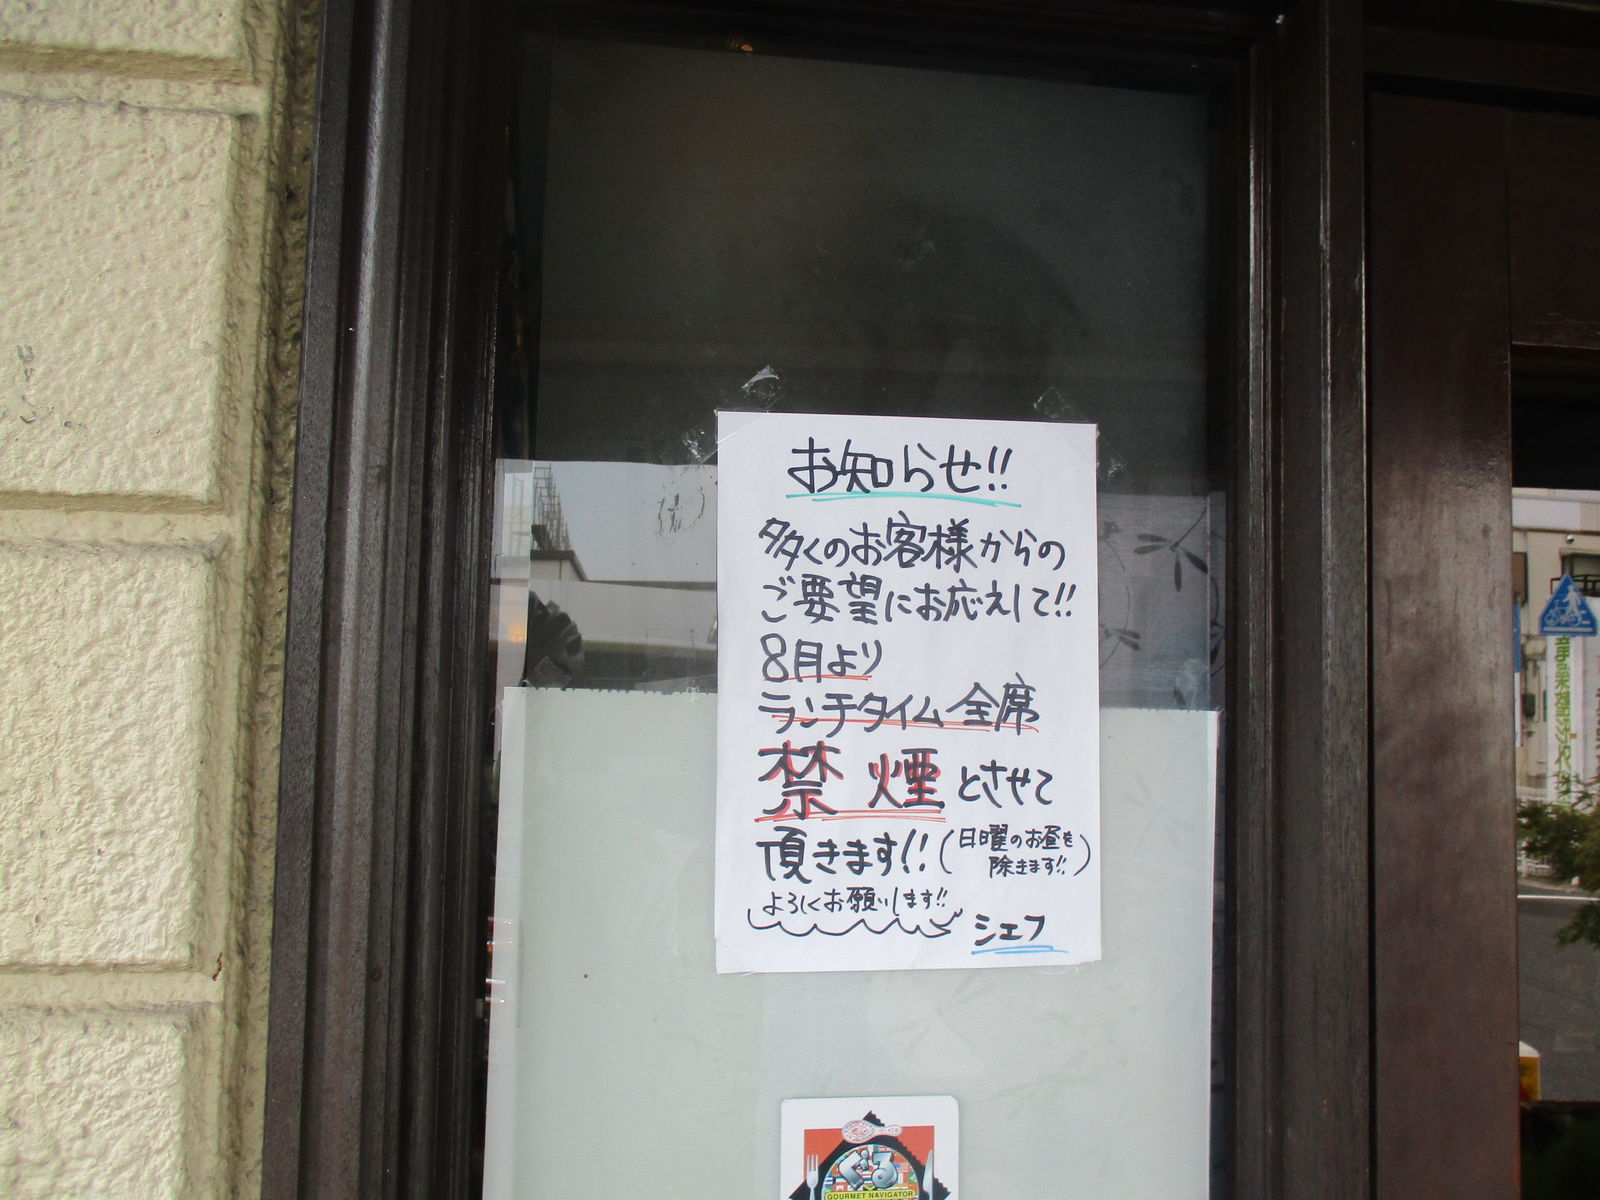 お知らせ!!
多くのお客様からの
ご要望にお応えして!!
8月より
ランチタイム全席
禁煙とさせて
頂きます!!(日曜のお昼を
除きます!!)
よろしくお願いします!!
シェフ
GOURMET NAVIGATOR